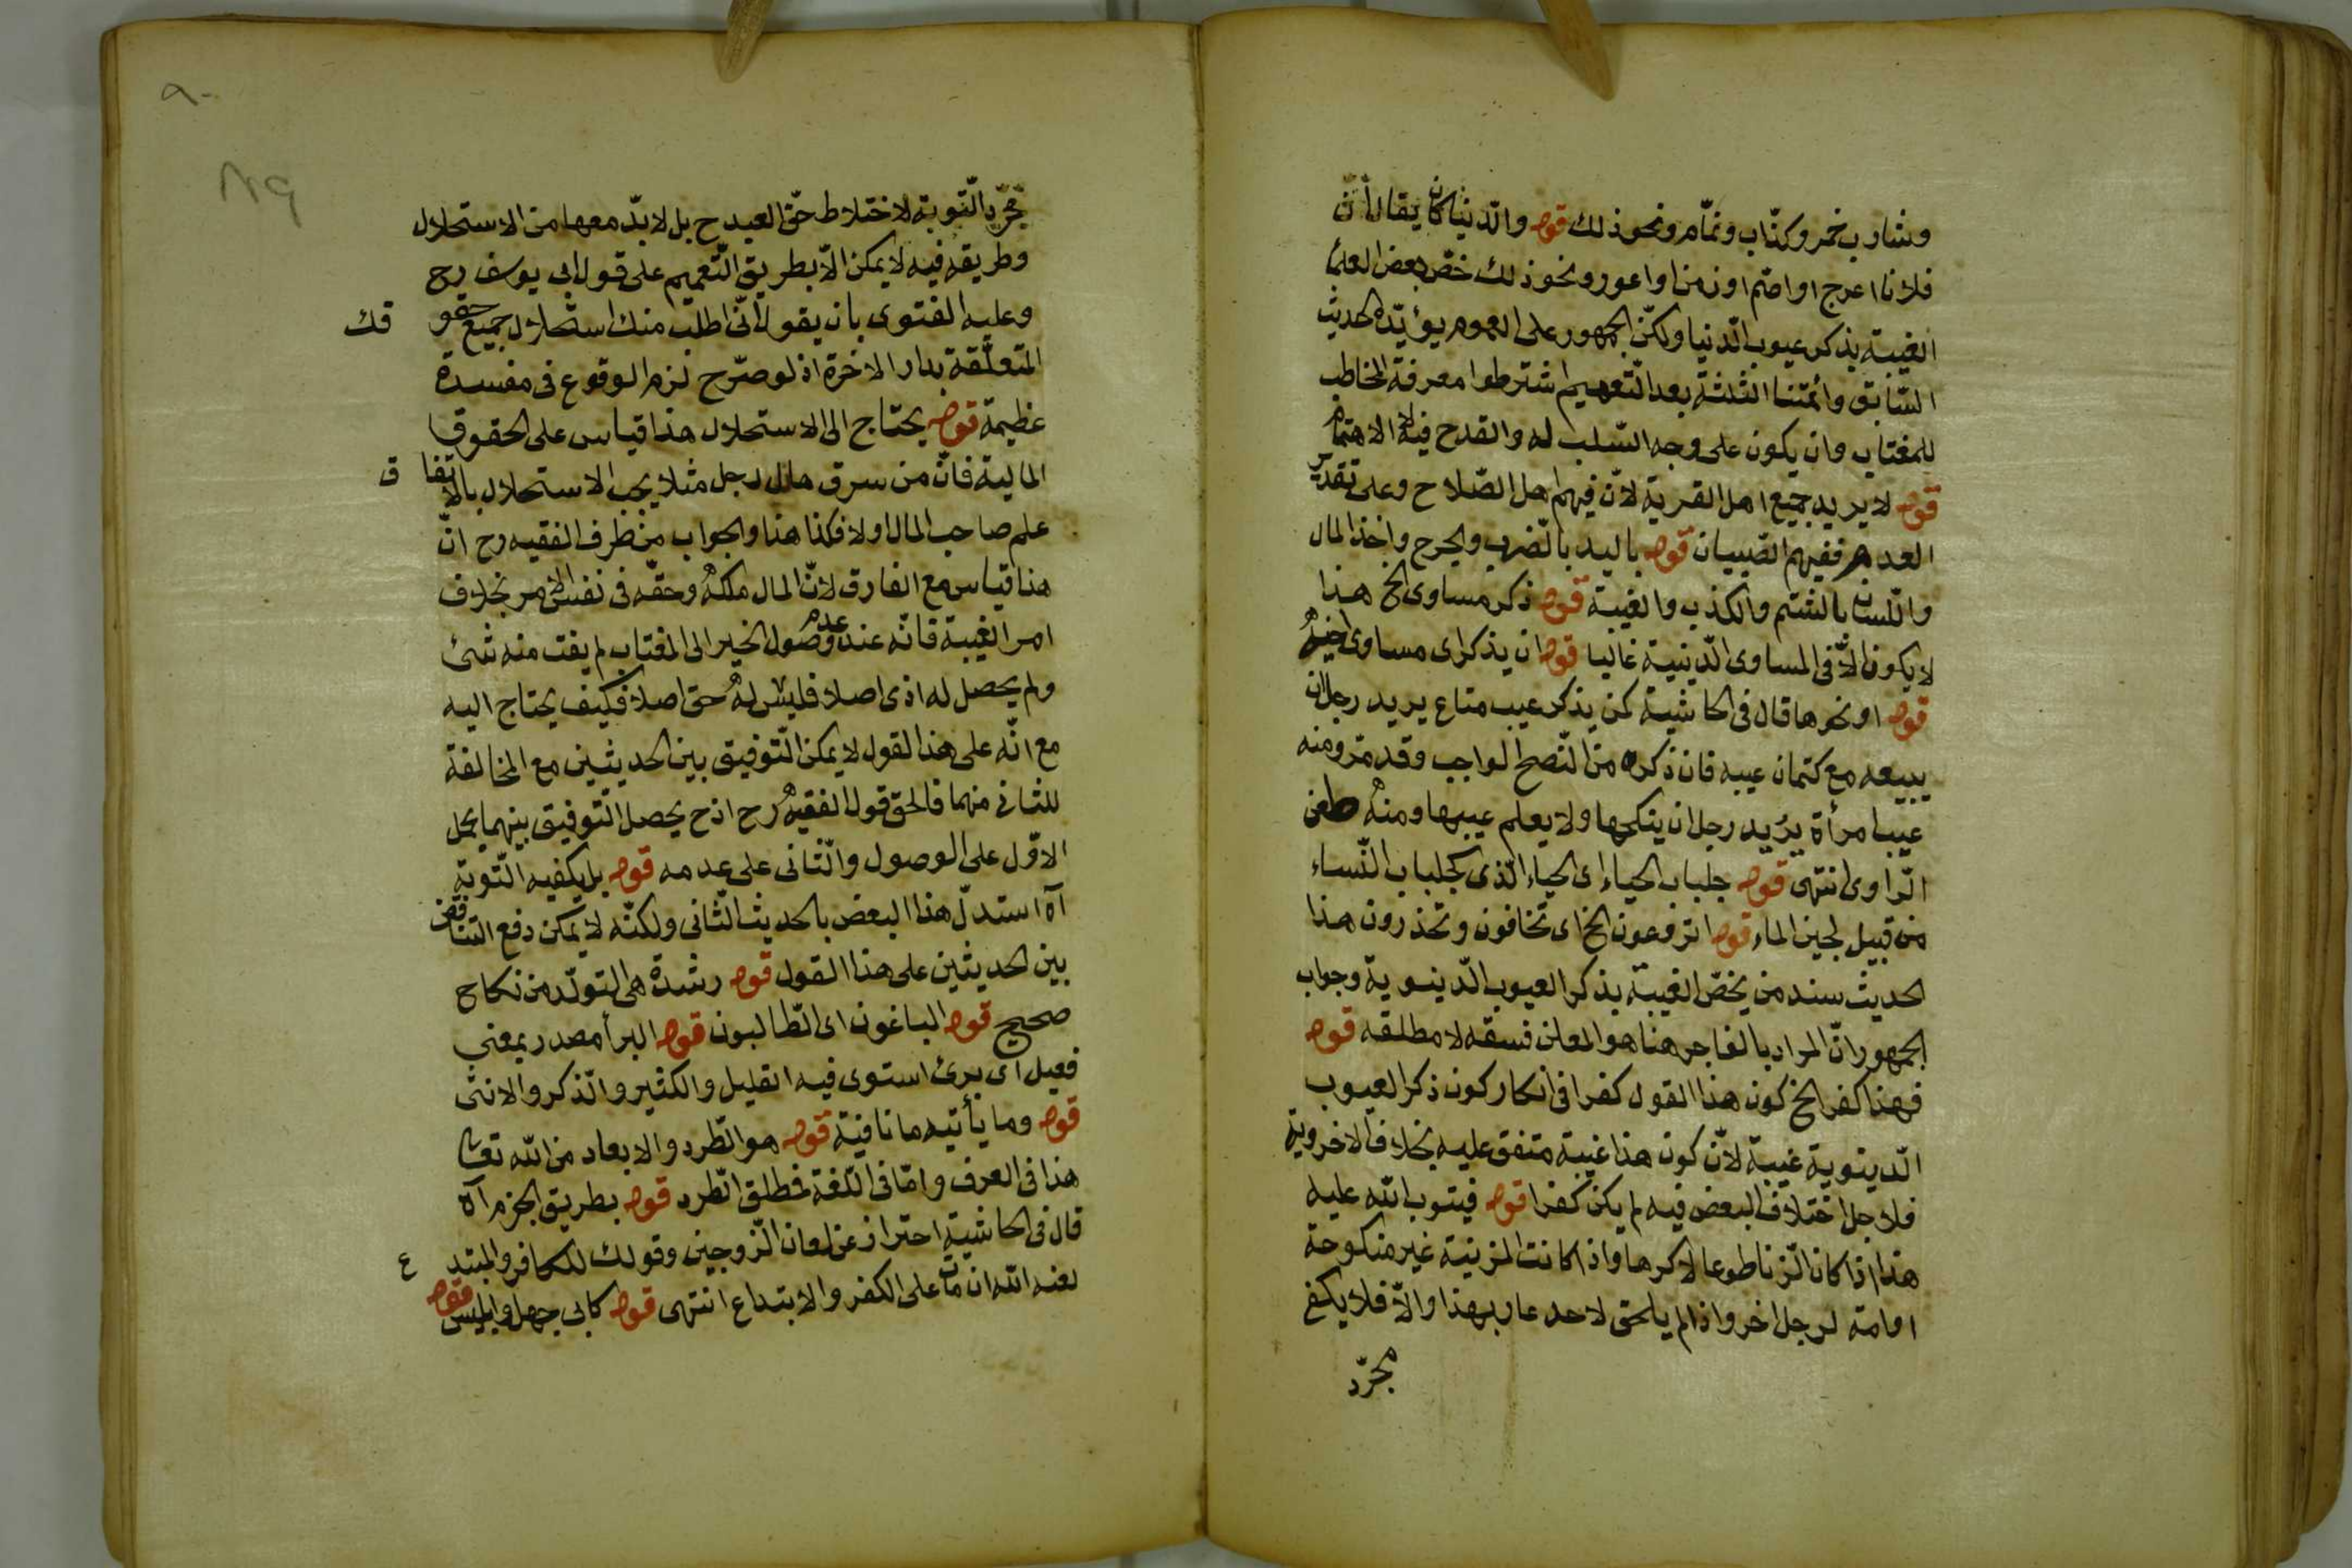 وشارب خمر وكذّاب ونمّام ونحو ذلك قوله والدّنيا كان يقال أنّ
فلانا اعرج او اصّم او زمن او اعور ونحو ذلك خصّ بعض العلماء
الغيبة بذكر عيوب الدّنيا ولكنّ الجمهور على العموم يؤيّده الحديث
السّابق وأئمّتنا الثلثة بعد التّعميم اشترطوا معرفة المخاطب
للمغتاب وان يكون على وجه السّلب له والقدح فيه لا الاهتمام
قوله لا يريد جميع اهل القرية لانّ فيهم اهل الصّلاح وعلى تقدير
العدم ففيهم الصّبيان قوله باليد بالضّرب والجرح واخذ المال
واللّسان بالشتم والكذب والغيبة قوله ذكر مساوى الخ هذا
لا يكون الّا فى المساوى الدّينية غالبا قوله ان يذكر اى مساوى اخيه
قوله او نحوها قال فى الحاشية كمن يذكر عيب متاع يريد رجل ان
يبيعه مع كتمان عيبه فان ذكره من النّصح الواجب وقد مرّ ومنه
عيب امرأة يريد رجل ان ينكحها ولا يعلم عيبها ومنه طعن
الرّاوى انتهى قوله جلباب الحياء اى الحياء الّذى كجلباب النّساء
من قبيل لجين الماء قوله اترعون الخ اى تخافون وتحذرون هذا
الحديث سند من يخصّ الغيبة بذكر العيوب الدّينوية وجواب
الجمهور انّ المراد بالفاجر هنا هو المعلن فسقه لا مطلقه قوله
فهذا كفر الخ كون هذا القول كفرا فى انكار كون ذكر العيوب
الدّينوية غيبة لانّ كون هذا غيبة متفق عليه بخلاف الاخروية
فلاجل اختلاف البعض فيه لم يكن كفرا قوله فيتوب الله عليه
هذا اذا كان الزّنا طوعا لا كرها واذا كانت المزنية غير منكوحة
او امة لرجل اخر واذا لم يلحق لاحد عار بهذا والّا فلا يكفى
مجرّد
مجرّد التّوبة لاختلاط حقّ العبد ح بل لا بدّ معها من الاستحلال
وطريقه فيه لا يمكن الّا بطريق التّعميم على قول ابى يوسف رح
وعليه الفتوى بان يقول انّى اطلب منك استحلال جميع حقو قك
المتعلّقة بدار الاخرة اذ لو صرّح لزم الوقوع فى مفسدة
عظيمة قوله يحتاج الى الاستحلال هذا قياس على الحقوق
المالية فانّ من سرق مال رجل مثلا يجب الاستحلال بالاتفا ق
علم صاحب المال اولا فكذا هنا والجواب من طرف الفقيه رح انّ
هذا قياس مع الفارق لانّ المال ملكه وحقّه فى نفس الامر بخلاف
امر الغيبة فانّه عند عدم وصول الخبر الى المغتاب لم يفت منه شئ
ولم يحصل له اذى اصلا فليس له حق اصلا فكيف يحتاج اليه
مع انّه على هذا القول لا يمكن التّوفيق بين الحديثين مع المخالفة
للثانى منهما فالحق قول الفقيه رح اذ ح يحصل التّوفيق بينهما بحمل
الاوّل على الوصول والثّانى على عدمه قوله بل يكفيه التّوبة
آه استدلّ هذا البعض بالحديث الثّانى ولكنّه لا يمكن دفع التناقض
بين الحديثين على هذا القول قوله رشدة هى التولّد من نكاح
صحيح قوله الباغون اى الطّالبون قوله البرأ مصدر بمعنى
فعيل اى برئ استوى فيه القليل والكثير والذّكر والانثى
قوله وما يأتيه ما نافية قوله هو الطّرد والابعاد من الله تعا
هذا فى العرف وامّا فى اللّغة فمطلق الطّرد قوله بطريق الجزم آه
قال فى الحاشية احتراز عن لعان الزّوجين وقولك للكافر والمبتد ع
لعنه الله ان مات على الكفر والابتداع انتهى قوله كابى جهل وابليس قوله